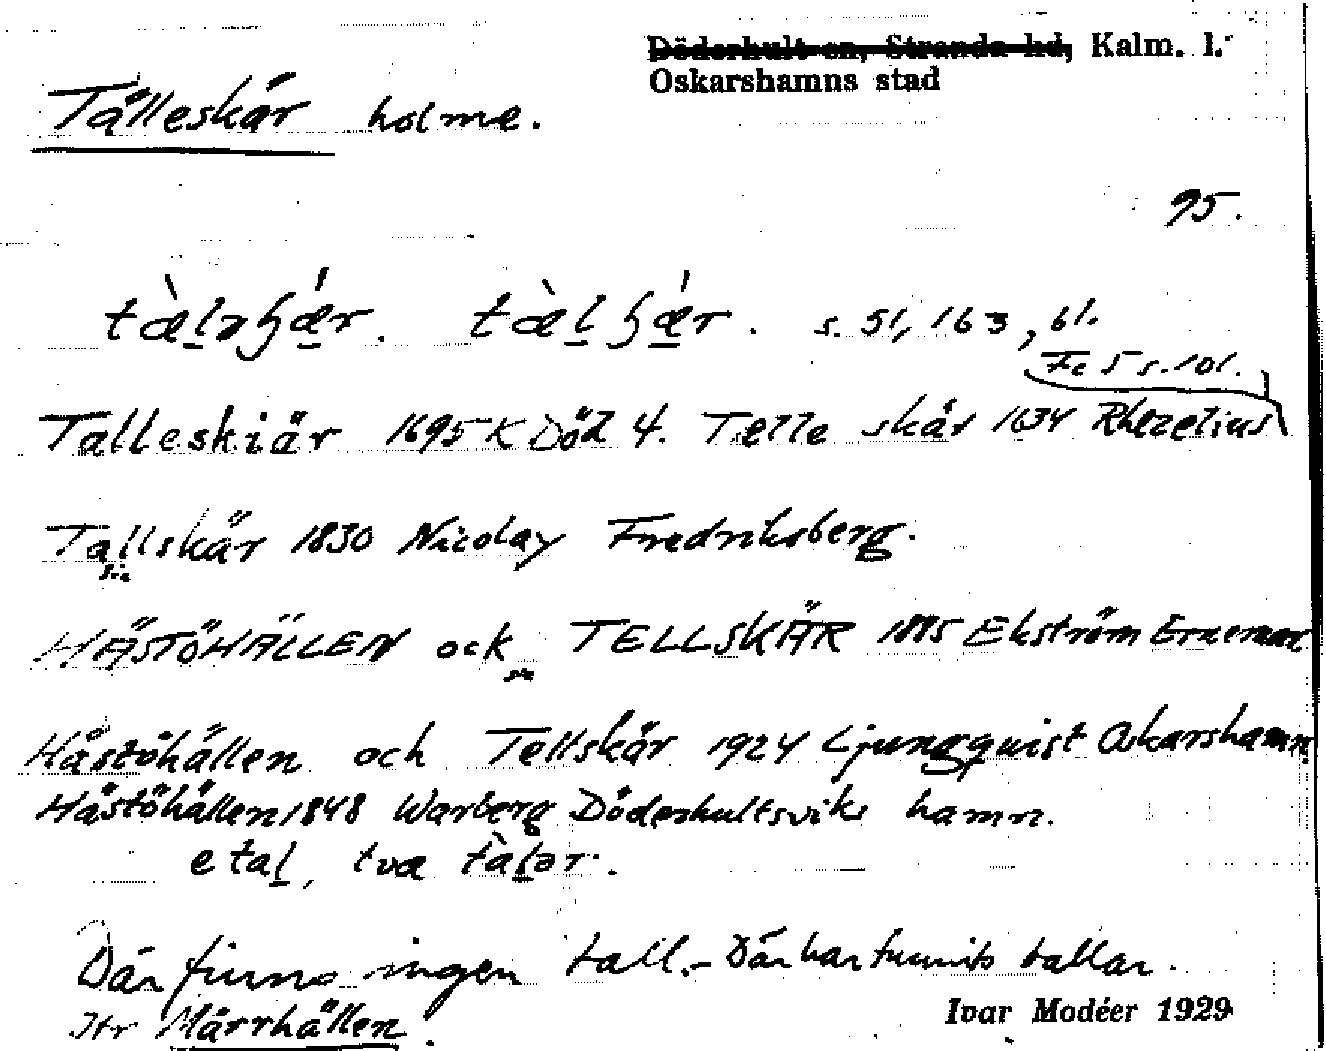 Döderhult sn, Stranda hd, Kalm. l.
Oskarshamns stad
Tälleskär holme.
95.
tæ̀ləʃǽr. tæ̀lʃǽr. s. 51, 163, 61.
Fc 5 s. 101.
Talleskiär 1695 K Död 4. Telle skär 1634 Rhezelius
Tallskär 1830 Nicolay Fredriksberg.
HÄSTÖHÄLLEN ock TELLSKÄR 1885 Ekström Ernemar
Hästöhällen och Tellskär 1924 Ljungquist Oskarshamn
Hästöhällen 1848 Warberg Döderhultsviks hamn.
e tal, tva tàlər.
Där finns ingen tall. – Där har funnits tallar.
Jfr Märrhällen.
Ivar Modéer 1929